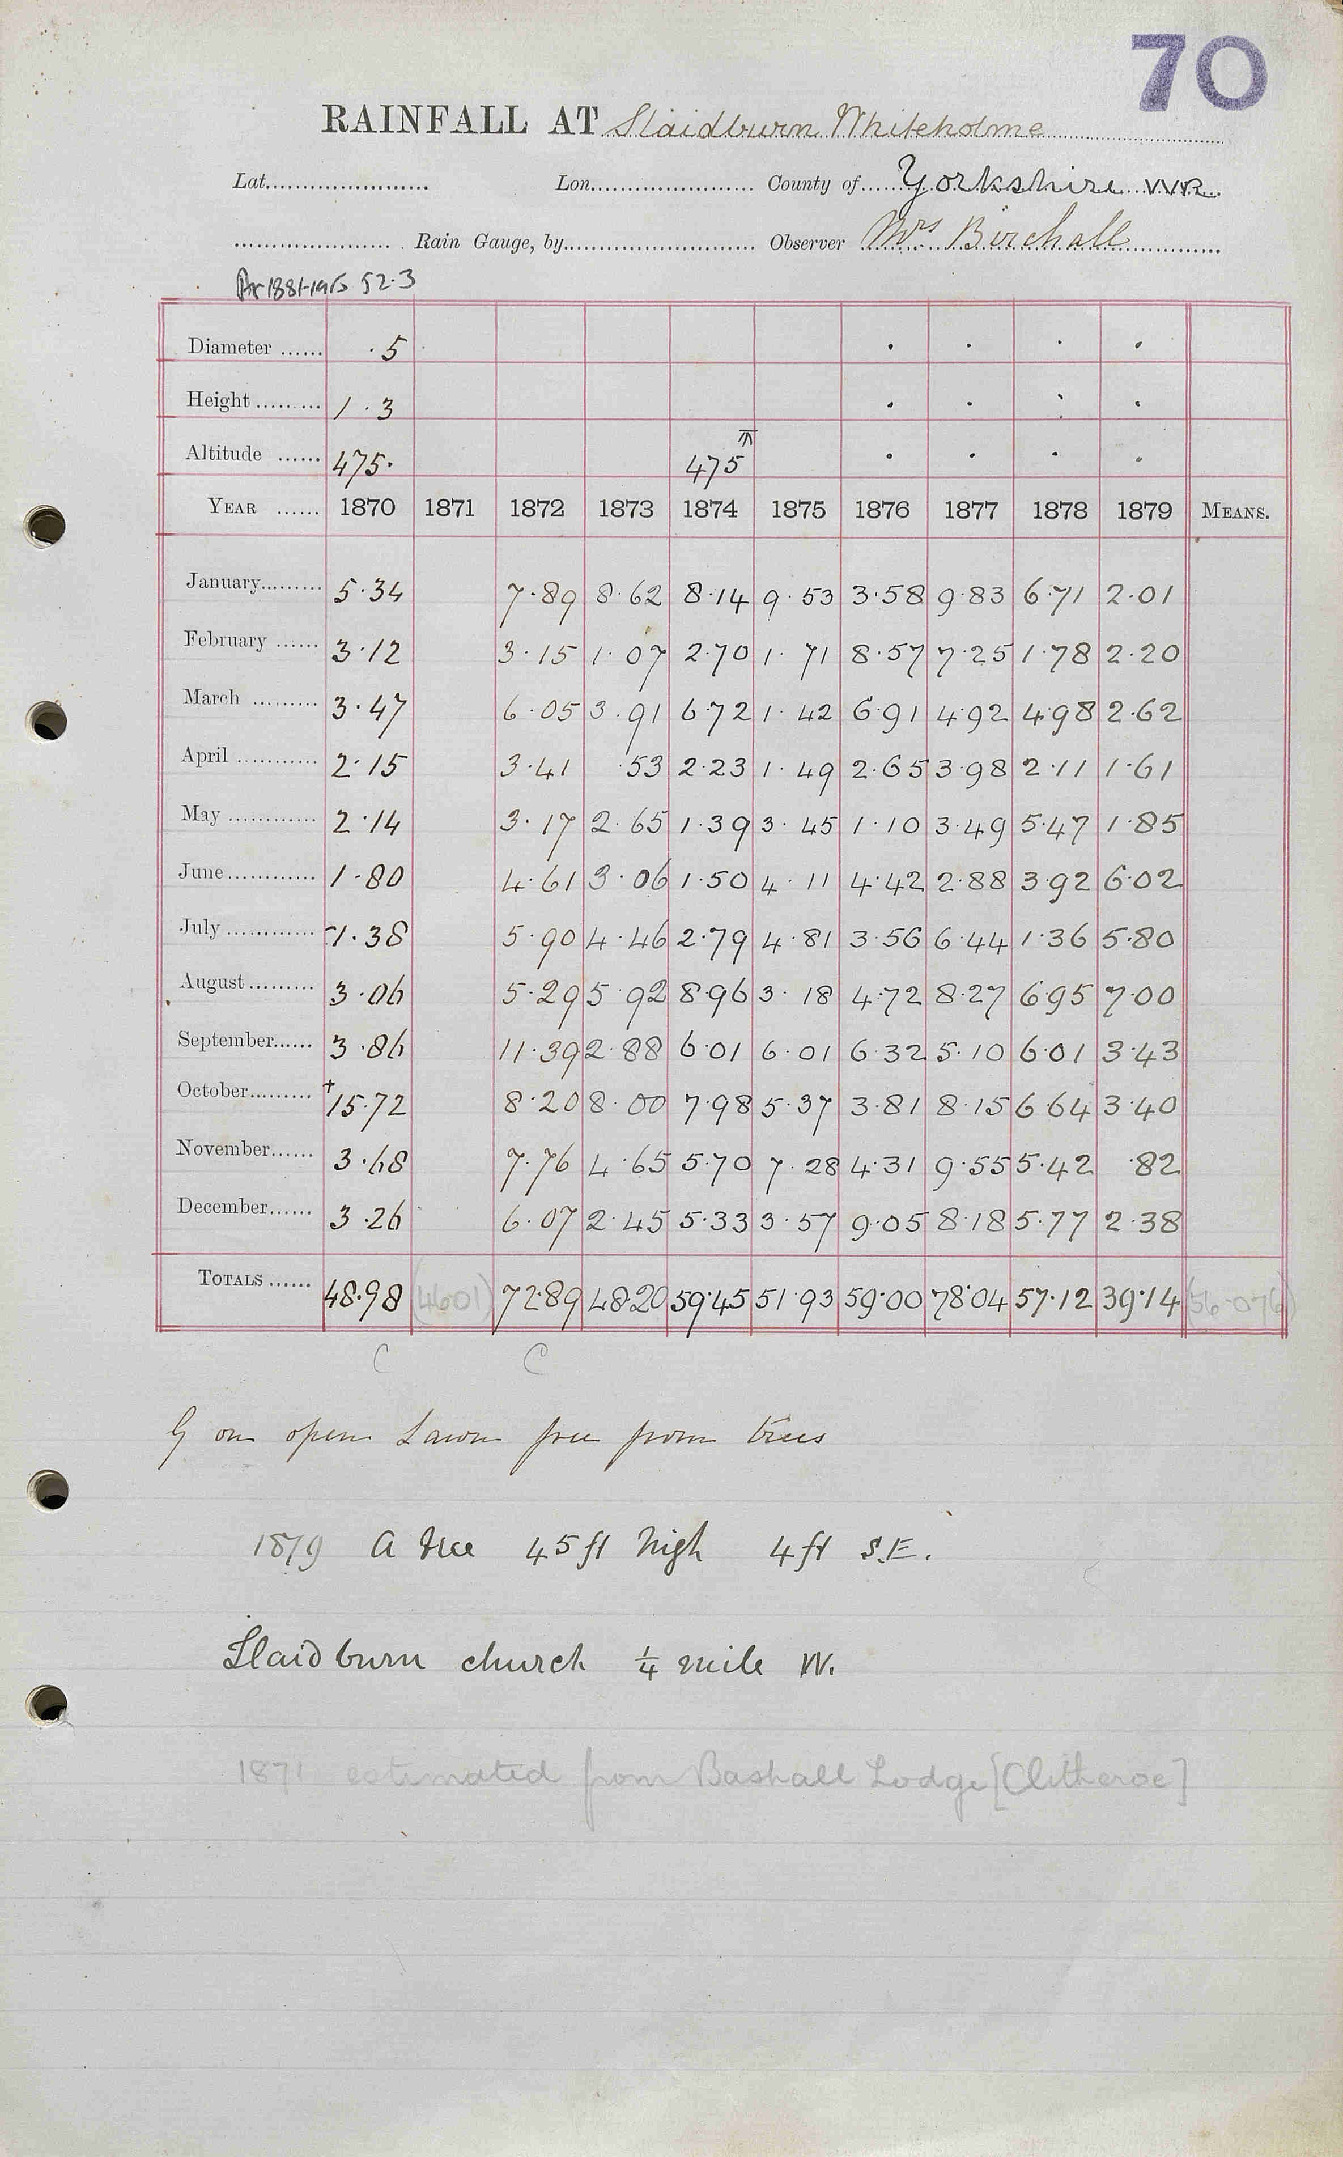 70
RAINFALL AT Slaidburn Whiteholme
Lat. Lon. County of Yorkshire W.R.
Rain Gauge, by Observer Mrs Birchall
Av 1881-1915 52.3
Diameter ...... .5 . . . .
Height ......... 1.3 . . . .
Altitude ...... 475. 475 . . . .
YEAR ...... 1870 1871 1872 1873 1874 1875 1876 1877 1878 1879 MEANS.
January......... 5.34 7.89 8.62 8.14 9.53 3.58 9.83 6.71 2.01
February ...... 3.12 3.15 1.07 2.70 1.71 8.57 7.25 1.78 2.20
March ......... 3.47 6.05 3.91 6.72 1.42 6.91 4.92 4.98 2.62
April ............ 2.15 3.41 .53 2.23 1.49 2.65 3.98 2.11 1.61
May ............ 2.14 3.17 2.65 1.39 3.45 1.10 3.49 5.47 1.85
June............ 1.80 4.61 3.06 1.50 4.11 4.42 2.88 3.92 6.02
July ............ -1.38 5.90 4.46 2.79 4.81 3.56 6.44 1.36 5.80
August......... 3.06 5.29 5.92 8.96 3.18 4.72 8.27 6.95 7.00
September...... 3.86 11.39 2.88 6.01 6.01 6.32 5.10 6.01 3.43
October......... +15.72 8.20 8.00 7.98 5.37 3.81 8.15 6.64 3.40
November...... 3.68 7.76 4.65 5.70 7.28 4.31 9.55 5.42 .82
December...... 3.26 6.07 2.45 5.33 3.57 9.05 8.18 5.77 2.38
TOTALS ...... 48.98 (46.01) 72.89 48.20 59.45 51.93 59.00 78.04 57.12 39.14 (56.076)
C C
G on open Lawn free from trees
1879 A tree 45 ft high 4 ft S.E.
Slaidburn church ¼ mile W.
1871 estimated from Bashall Lodge [Clitheroe]